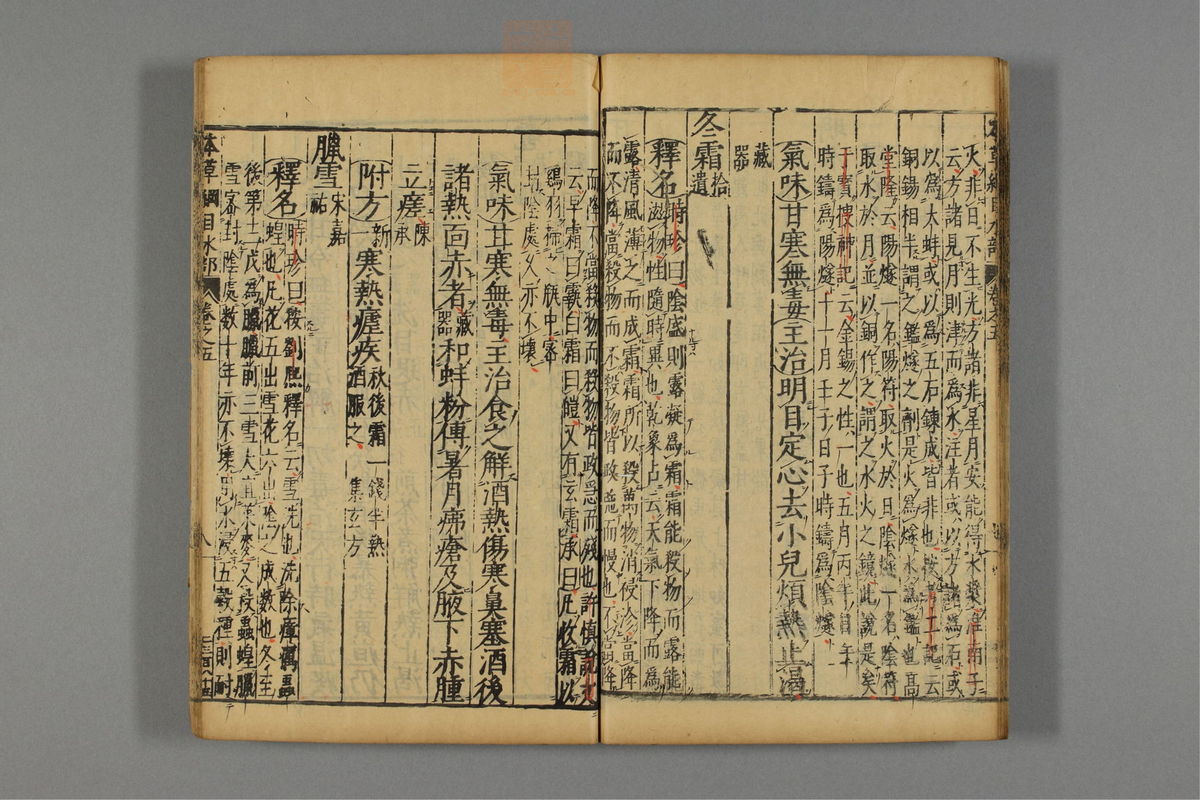 本草綱目水部 卷之五
火非日不生光方諸非星月安能得水哉淮南子
云方諸見月則津而爲水注者或以方諸爲石或
以爲大蚌或以爲五石鍊成皆非也按考工記云
銅錫相半謂之鑑燧之劑是火爲燧水爲鑑也高
堂隆云陽燧一名陽符取火於日陰燧一名陰符
取水於月並以銅作之謂之水火之鏡此說是矣
于寶搜神記云金錫之性一也五月丙午日午
時鑄爲陽燧十一月壬子日子時鑄爲陰燧
氣味甘寒無毒主治明目定心去小兒煩熱止渴
藏器
冬霜拾遺
釋名時珍曰陰盛則露凝爲霜霜能殺物而露能
滋物性隨時異也乾象占云天氣下降而爲
露清風薄之而成霜霜所以殺萬物消祲沴當降
而不降當殺物而不殺物皆政弛而慢也不當降
而降不當殺物而殺物皆政急而殘也許慎說文
云早霜曰䨴白霜曰皚又有玄霜承曰凡收霜以
雞羽掃之瓶中密
封陰處久亦不壞
氣味甘寒無毒主治食之解酒熱傷寒鼻塞酒後
諸熱面赤者藏器和蚌粉傅暑月疿瘡及腋下赤腫
立瘥陳承
附方新一寒熱瘧疾秋後霜一錢半熱酒服之集玄方
臘雪宋嘉祐
釋名時珍曰按劉熙釋名云雪洗也洗除瘴癘蟲
蝗也凡花五出雪花六出陰之成數也冬至
後第三戊爲臘臘前三雪大宜菜麥又殺蟲蝗臘
雪密封陰處數十年亦不壞用水浸五穀種則耐
本草綱目水部 卷之五 八